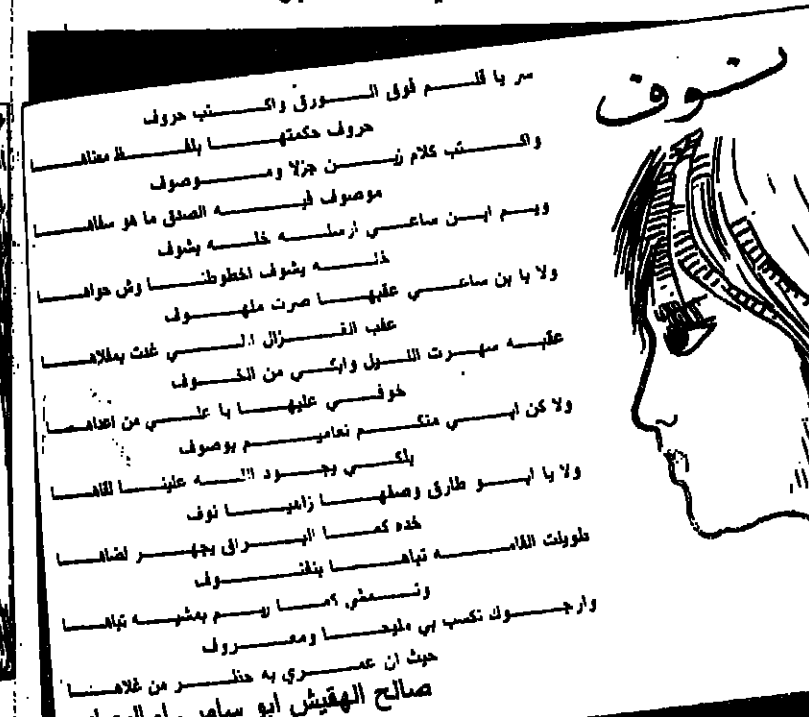 نوف
سر يا قلم فوق الورق واكتب حروف
حروف حكمتها بلفظ معناها
واكتب كلام زين جزلا وموصوف
موصوف فيه الصدق ما هو سفاها
ويم ابن ساعي ارسله خله يشوف
خله يشوف اخطوطنا وش حواها
ولا يا بن ساعي عقبها صرت ملهوف
عقب الغزال اللي غدت بمفلاها
عقبه سهرت الليل وابكي من الخوف
خوفي عليها يا علي من اعداها
ولا كن ابي منكم نعاميم بوصوف
بلكي يجود الله علينا لقاها
ولا يا ابو طارق وصفها زاهيا نوف
خده كما البراق يجهر لضاها
طويلت القامه تباها بنفنوف
وتمشي كما ريم بمشيه تباها
وارجوك تكسب بي مليحا ومعروف
حيث ان عمري به خطر من غلاها
صالح الهقيش ابو سامر